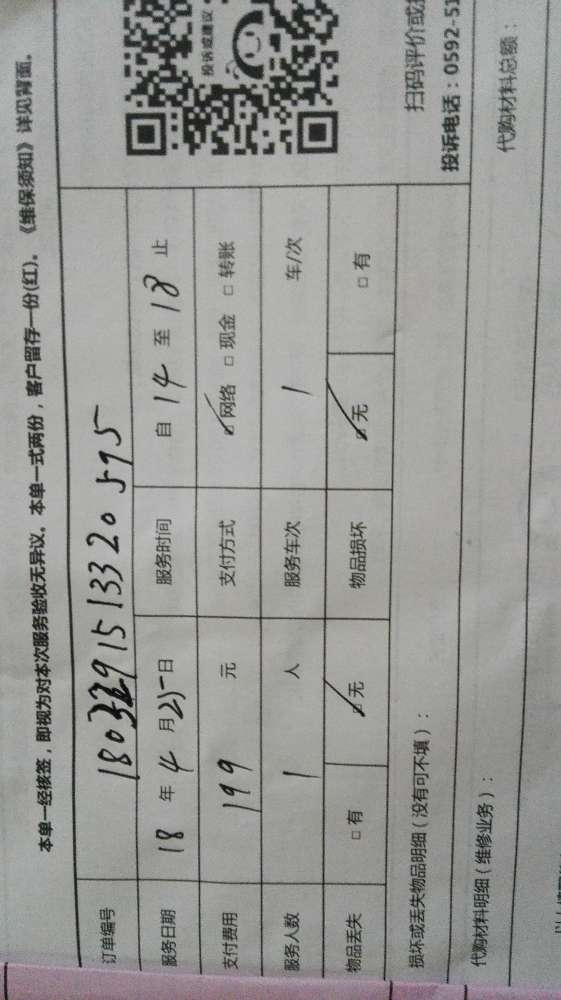 本单一经核签，即视为对本次服务验收无异议。本单一式两份，客户留存一份(红)。《维保须知》详见背面。
订单编号 1803291513320595
服务日期 18 年 4 月 25 日 服务时间 自 14 至 18 止
支付费用 199 元 支付方式 ☑网络 □现金 □转账
服务人数 1 人 服务车次 1 车/次
物品丢失 □有 ☑无 物品损坏 ☑无 □有
损坏或丢失物品明细（没有可不填）：
投诉或建议
扫码评价或
投诉电话：0592-51
代购材料明细（维修业务）：
代购材料总额：